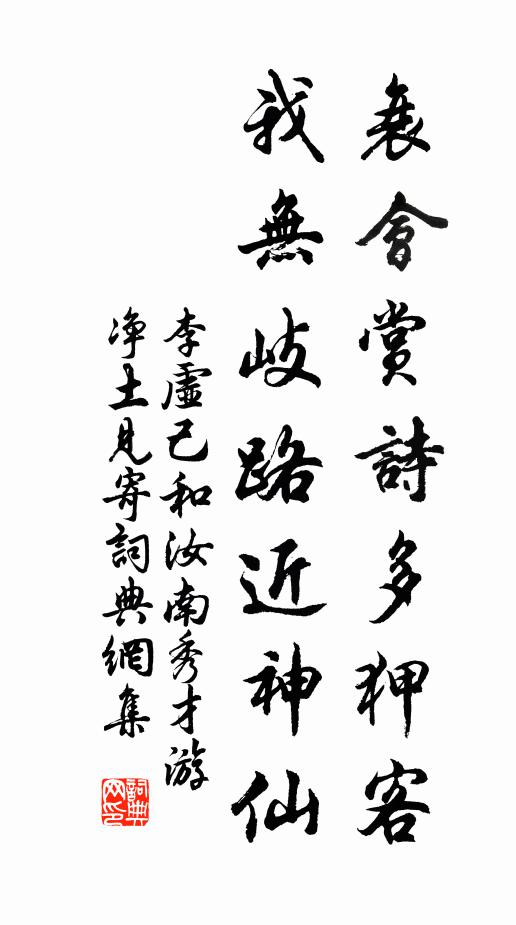 襄會賞詩多狎客
我無岐路近神仙
李虛己和汝南秀才游
凈土見寄詞典網集
詞典网印